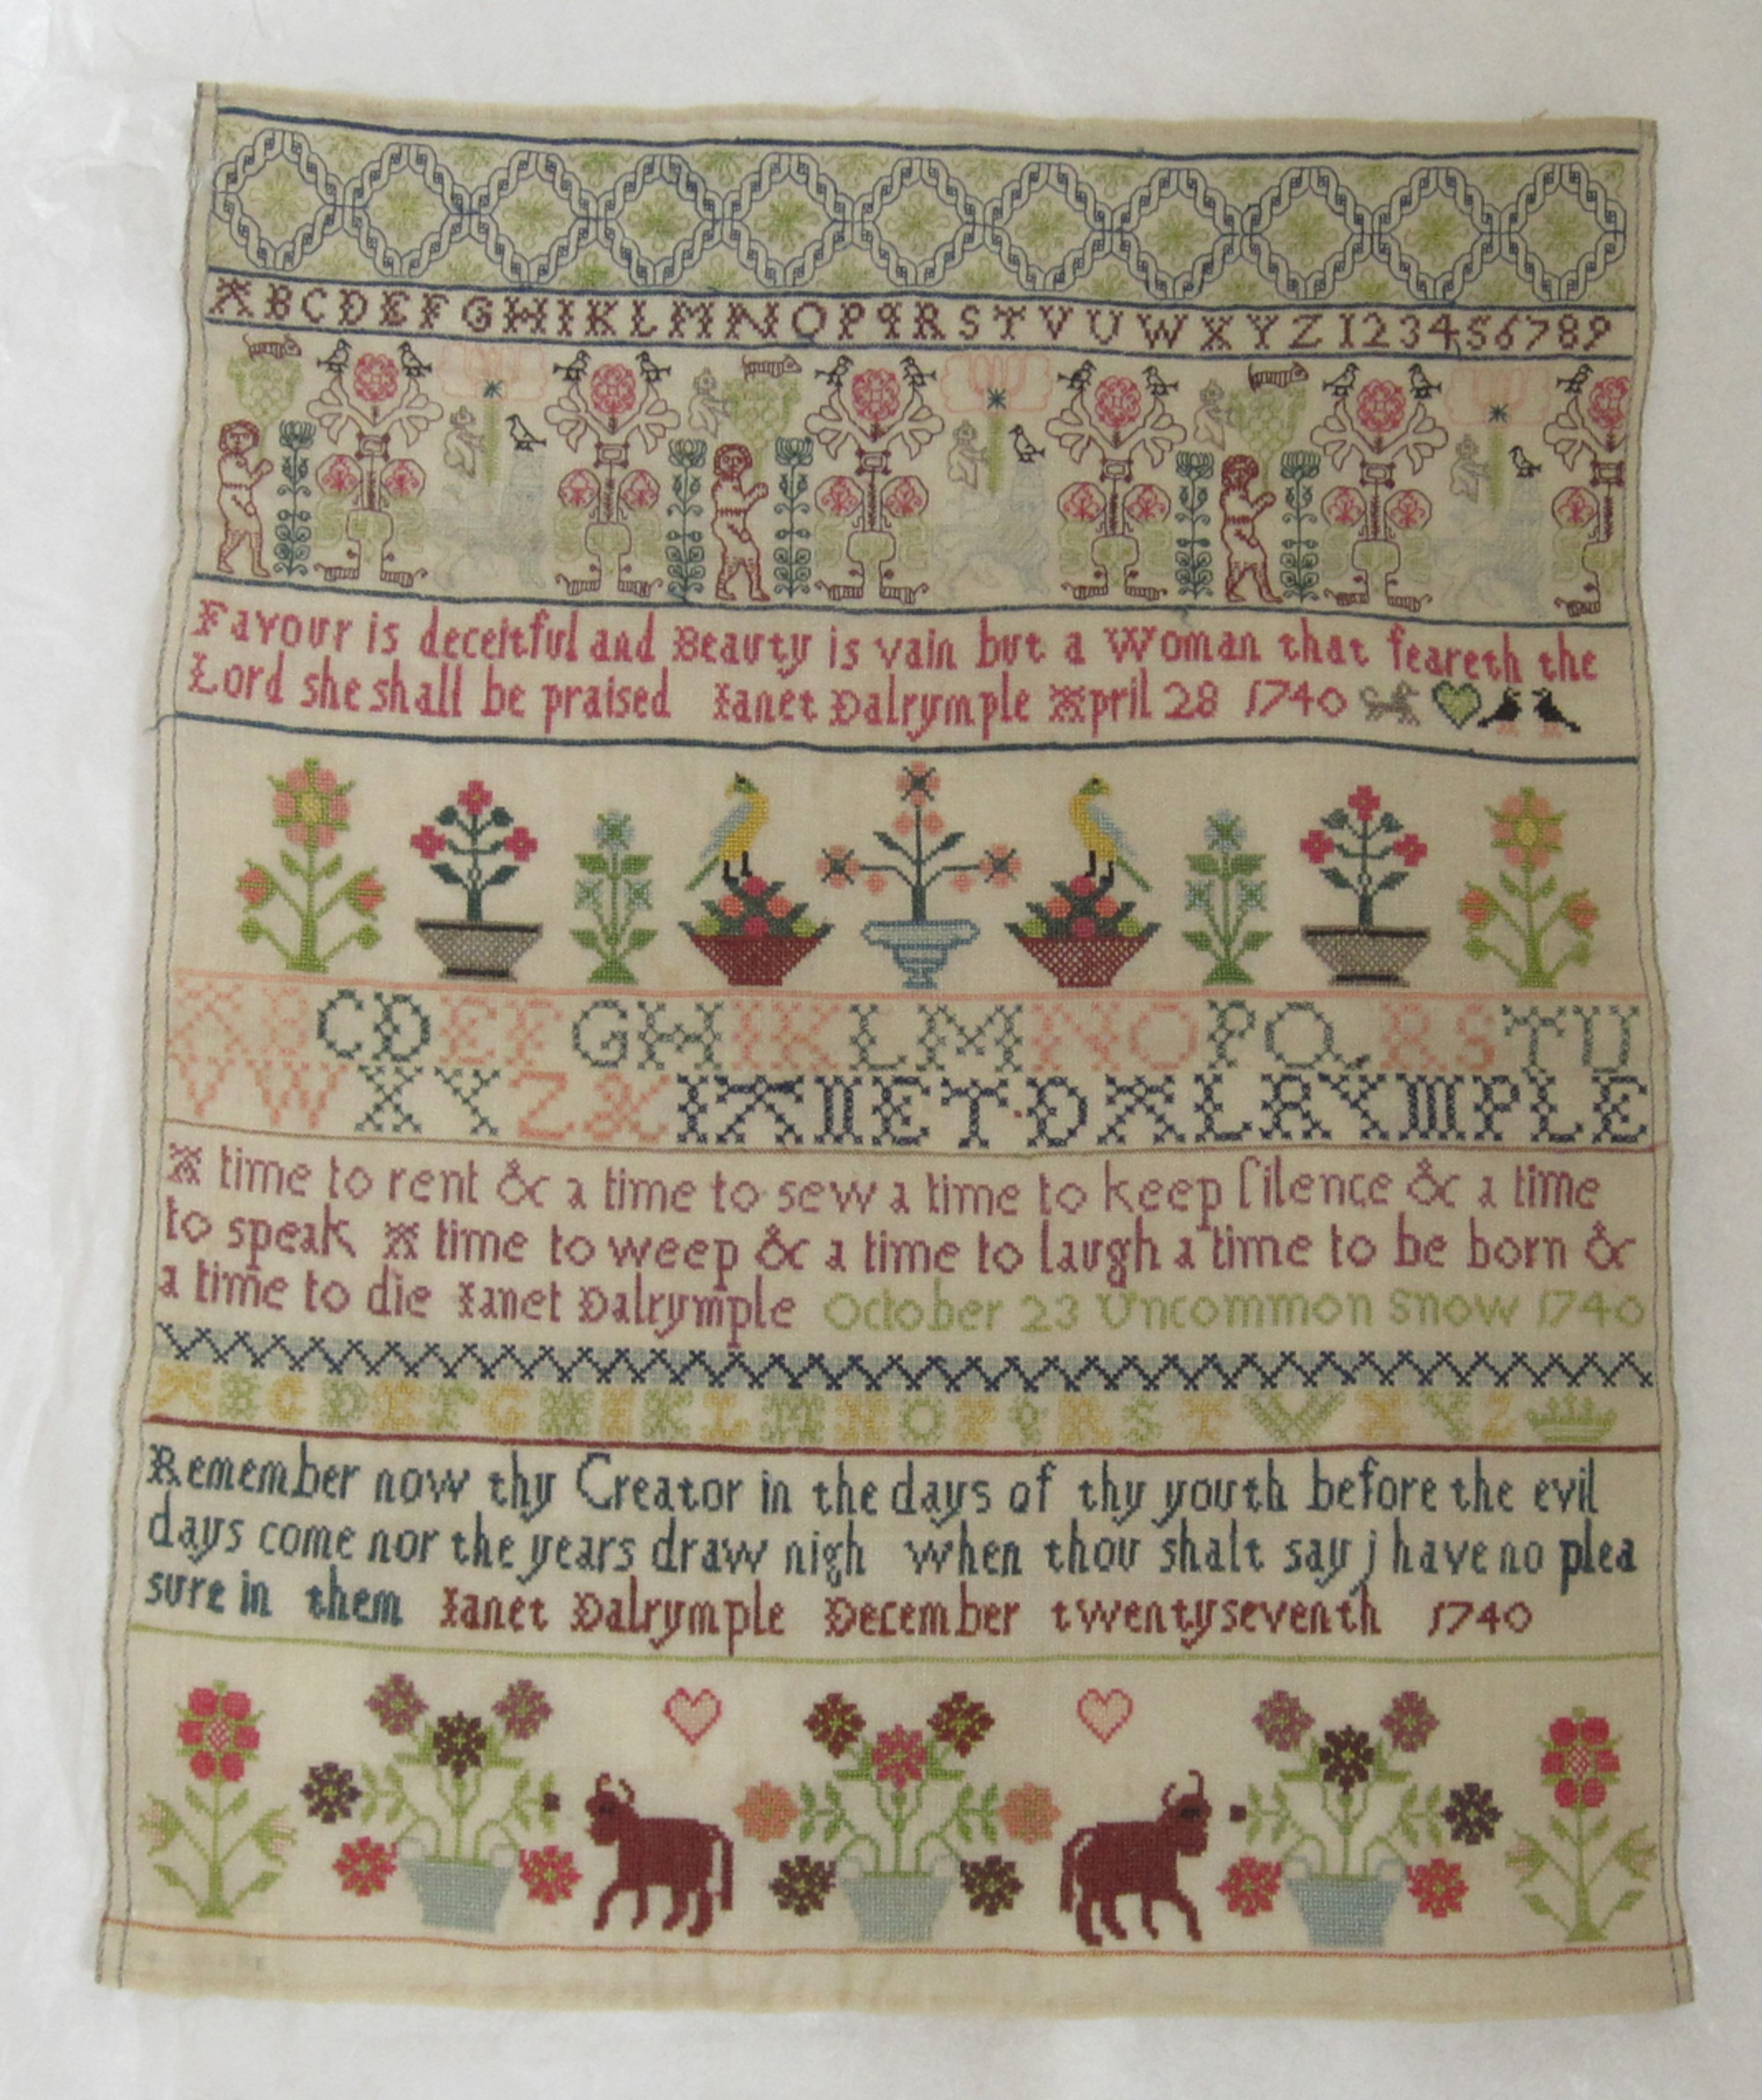 ABCDEFGHIKLMNOPqRSTVUWXYZ123456789
Favour is deceitful and Beauty is vain but a Woman that feareth the
Lord she shall be praised Ianet Dalrymple April 28 1740
ABCDEFGHIKLMNOPQRSTU
VWXYZ& IANET·DALRYMPLE
A time to rent & a time to sew a time to keep ſilence & a time
to speak A time to weep & a time to laugh a time to be born &
a time to die Ianet Dalrymple October 23 Uncommon Snow 1740
ABCDEFGHIKLMNOPqRSTWXYZ
Remember now thy Creator in the days of thy youth before the evil
days come nor the years draw nigh when thou shalt say j have no plea
sure in them Ianet Dalrymple December twentyseventh 1740